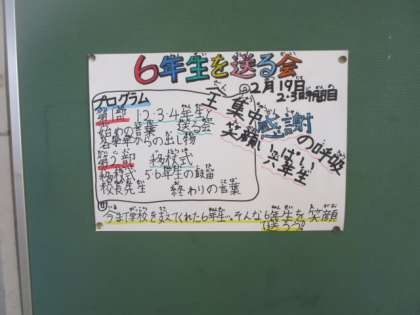 6年生を送る会
2月19日
2・3時間目
プログラム
第1部 1・2・3・4年生
始めの言葉 送る会
各学年からの出し物
第2部 移杖式
移杖式 5・6年生の鼓笛
校長先生 終わりの言葉
全集中
感謝の呼吸
笑顔いっぱい
今まで学校を支えてくれた6年生。そんな6年生を笑顔で
送ろう。